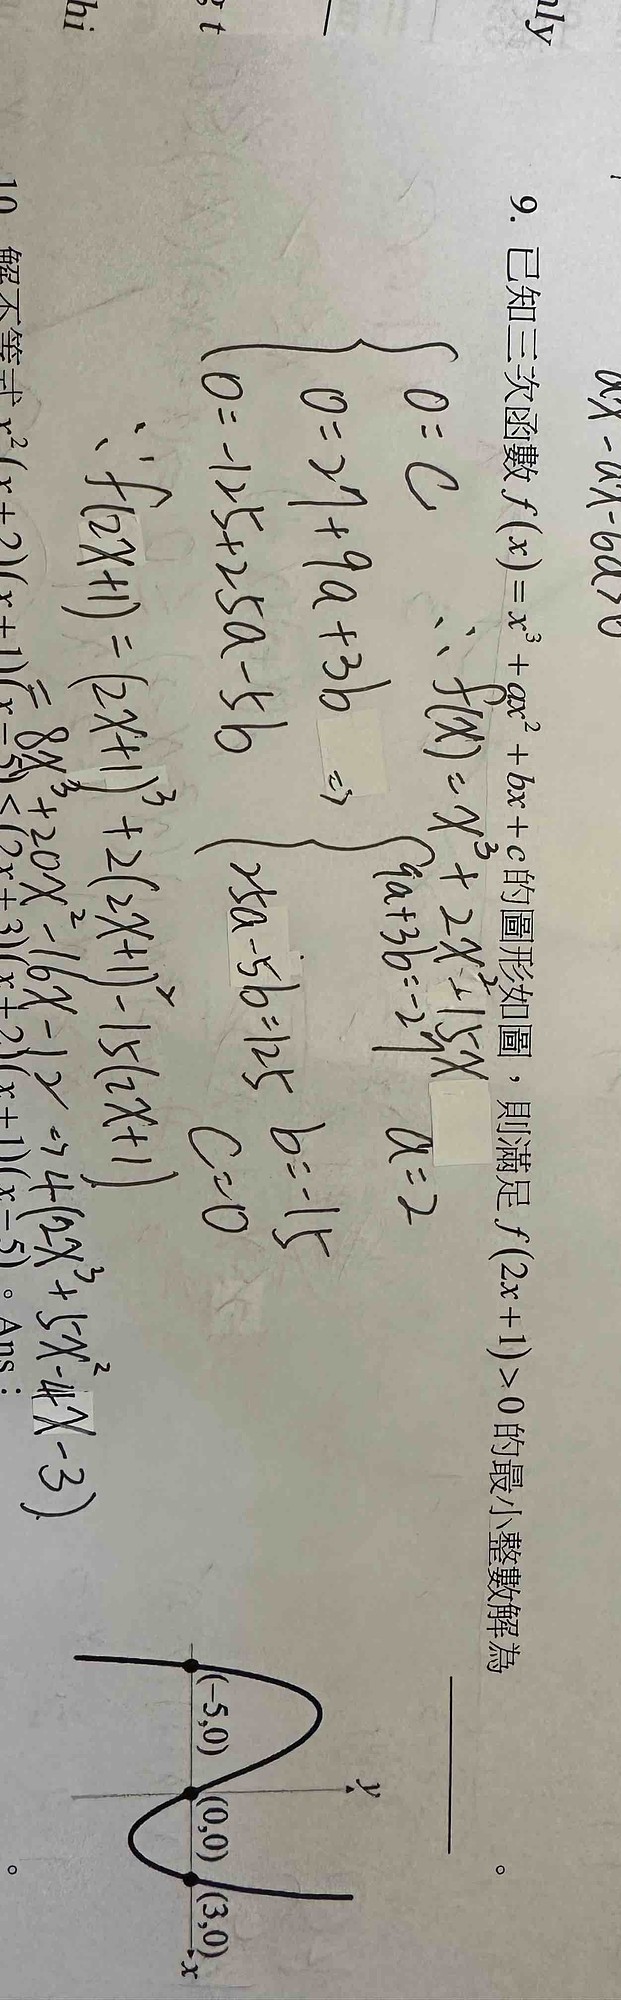 nly
g t
hi
ax - ax - 6a > 0
9. 已知三次函數 f(x) = x³ + ax² + bx + c 的圖形如圖，則滿足 f(2x+1) > 0 的最小整數解為________。
∴ f(x) = x³ + 2x² - 15x
0 = C
0 = 27 + 9a + 3b ⇒ 9a + 3b = -27 a = 2
0 = -125 + 25a - 5b 25a - 5b = 125 b = -15
C = 0
∴ f(2x+1) = (2x+1)³ + 2(2x+1)² - 15(2x+1)
= 8x³ + 20x² - 16x - 12 ⇒ 4(2x³ + 5x² - 4x - 3)
y
(-5,0) (0,0) (3,0) x
10. 解不等式 x²(x+2)(x+1)(x-5) < (2x+3)(x+2)(x+1)(x-5)。Ans: 。